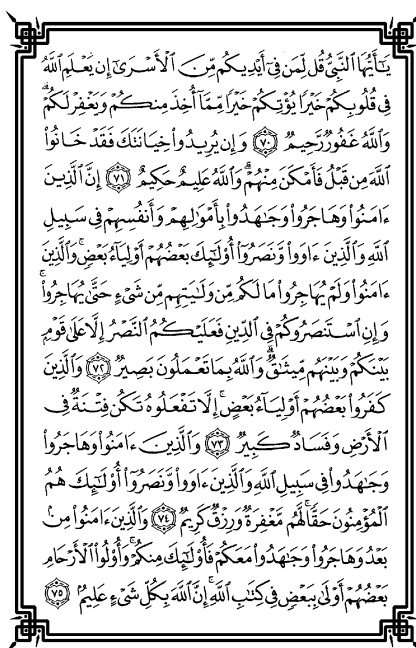 يَٰٓأَيُّهَا ٱلنَّبِيُّ قُل لِّمَن فِيٓ أَيْدِيكُم مِّنَ ٱلْأَسْرَىٰٓ إِن يَعْلَمِ ٱللَّهُ
فِي قُلُوبِكُمْ خَيْرًا يُؤْتِكُمْ خَيْرًا مِّمَّآ أُخِذَ مِنكُمْ وَيَغْفِرْ لَكُمْۗ
وَٱللَّهُ غَفُورٌ رَّحِيمٌ ٧٠ وَإِن يُرِيدُوا۟ خِيَانَتَكَ فَقَدْ خَانُوا۟
ٱللَّهَ مِن قَبْلُ فَأَمْكَنَ مِنْهُمْۗ وَٱللَّهُ عَلِيمٌ حَكِيمٌ ٧١ إِنَّ ٱلَّذِينَ
ءَامَنُوا۟ وَهَاجَرُوا۟ وَجَٰهَدُوا۟ بِأَمْوَٰلِهِمْ وَأَنفُسِهِمْ فِي سَبِيلِ
ٱللَّهِ وَٱلَّذِينَ ءَاوَوا۟ وَّنَصَرُوٓا۟ أُو۟لَٰٓئِكَ بَعْضُهُمْ أَوْلِيَآءُ بَعْضٍۚ وَٱلَّذِينَ
ءَامَنُوا۟ وَلَمْ يُهَاجِرُوا۟ مَا لَكُم مِّن وَلَٰيَتِهِم مِّن شَيْءٍ حَتَّىٰ يُهَاجِرُوا۟ۚ
وَإِنِ ٱسْتَنصَرُوكُمْ فِي ٱلدِّينِ فَعَلَيْكُمُ ٱلنَّصْرُ إِلَّا عَلَىٰ قَوْمٍۭ
بَيْنَكُمْ وَبَيْنَهُم مِّيثَٰقٌۗ وَٱللَّهُ بِمَا تَعْمَلُونَ بَصِيرٌ ٧٢ وَٱلَّذِينَ
كَفَرُوا۟ بَعْضُهُمْ أَوْلِيَآءُ بَعْضٍۚ إِلَّا تَفْعَلُوهُ تَكُن فِتْنَةٌ فِي
ٱلْأَرْضِ وَفَسَادٌ كَبِيرٌ ٧٣ وَٱلَّذِينَ ءَامَنُوا۟ وَهَاجَرُوا۟
وَجَٰهَدُوا۟ فِي سَبِيلِ ٱللَّهِ وَٱلَّذِينَ ءَاوَوا۟ وَّنَصَرُوٓا۟ أُو۟لَٰٓئِكَ هُمُ
ٱلْمُؤْمِنُونَ حَقًّاۚ لَّهُم مَّغْفِرَةٌ وَرِزْقٌ كَرِيمٌ ٧٤ وَٱلَّذِينَ ءَامَنُوا۟ مِنۢ
بَعْدُ وَهَاجَرُوا۟ وَجَٰهَدُوا۟ مَعَكُمْ فَأُو۟لَٰٓئِكَ مِنكُمْۚ وَأُو۟لُوا۟ ٱلْأَرْحَامِ
بَعْضُهُمْ أَوْلَىٰ بِبَعْضٍ فِي كِتَٰبِ ٱللَّهِۗ إِنَّ ٱللَّهَ بِكُلِّ شَيْءٍ عَلِيمٌۢ ٧٥